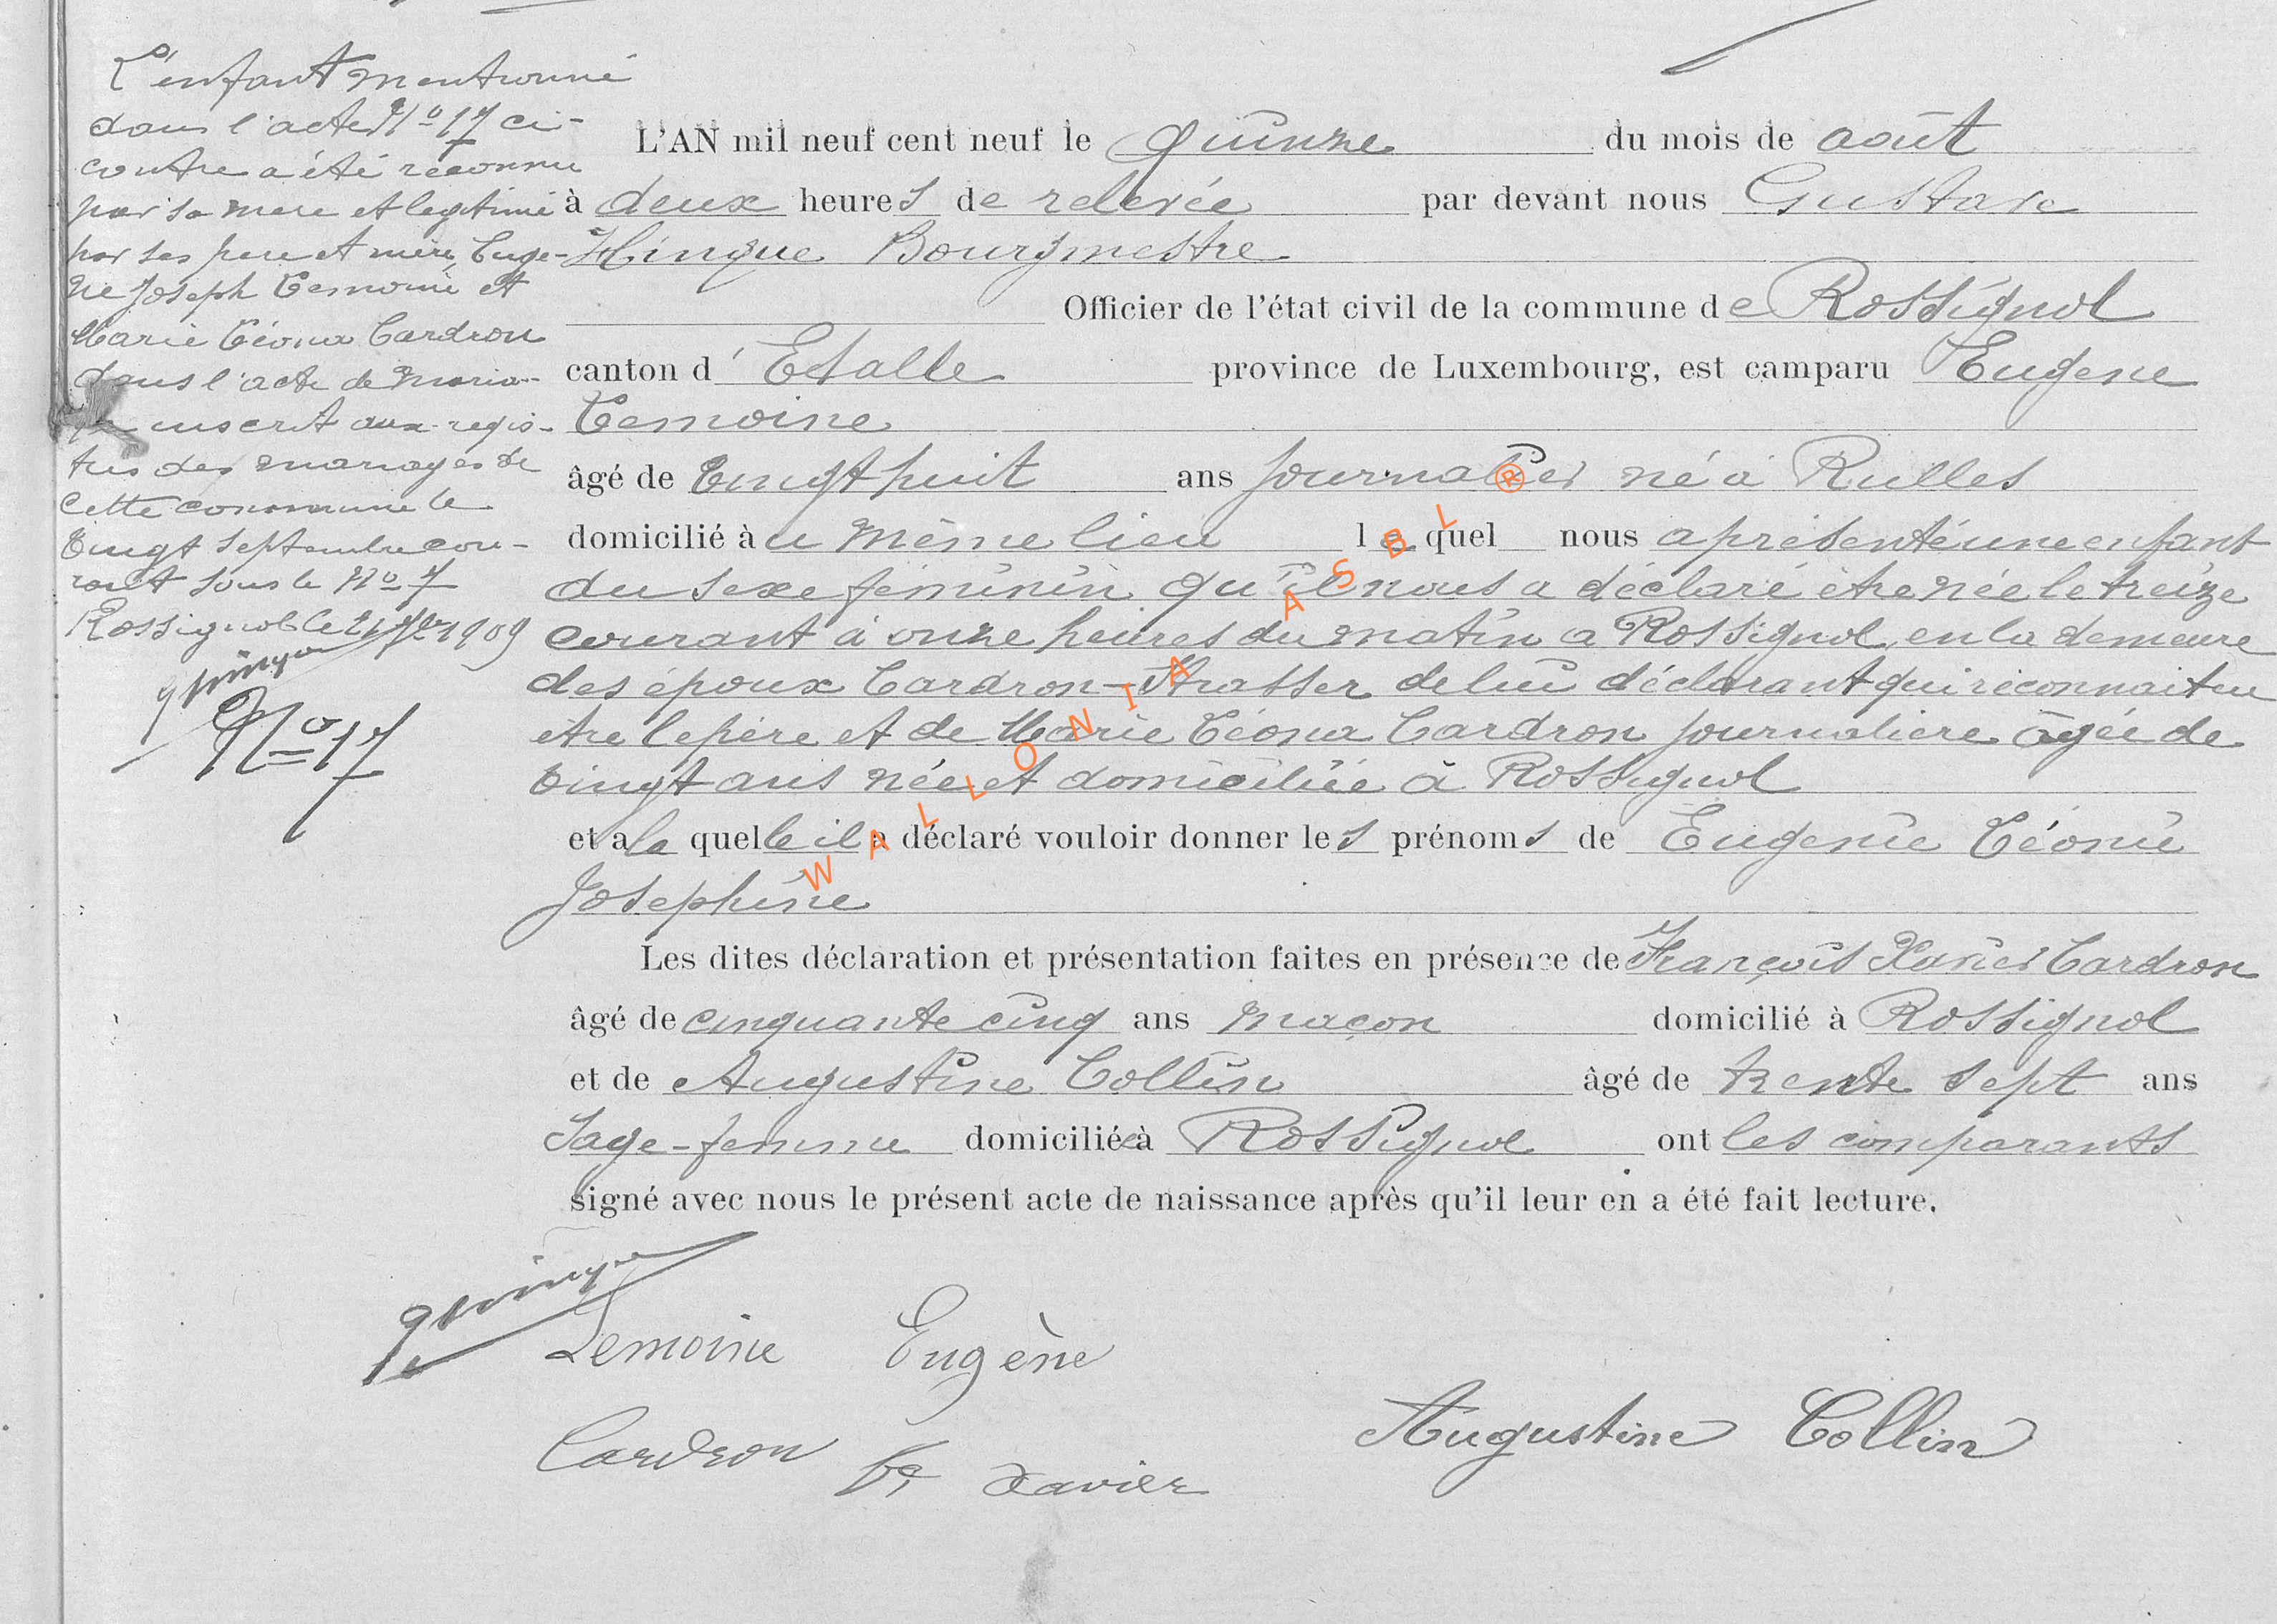 L'enfant mentionné
dans l'acte N° 17 ci-
contre a été reconnu
par sa mère et legitimé
par ses père et mère, Eugè-
ne Joseph Lemoine et
Marie Léonie Cardron
dans l'acte de maria-
ge inscrit aux regis-
tres des mariages de
cette commune le
Vingt septembre cou-
rant sous le N° 7
Rossignol le 21 7bre 1909
N° 17
L'AN mil neuf cent neuf le quinze du mois de août
à deux heures de relevée par devant nous Gustave
Hinque Bourgmestre
Officier de l'état civil de la commune de Rossignol
canton d'Etalle province de Luxembourg, est camparu Eugene
Lemoine
âgé de Vingt huit ans journalier né à Rulles
domicilié au même lieu lequel nous a présenté une enfant
du sexe féminin qu'il nous a déclaré être née le treize
courant à onze heures du matin a Rossignol, en la demeure
des époux Cardron-Strasser de lui déclarant qui reconnait en
être le père et de Marie Léonie Cardron journaliere âgée de
Vingt ans née et domiciliée à Rossignol
et a la quelle il a déclaré vouloir donner les prénoms de Eugenie Léonie
Josephine
Les dites déclaration et présentation faites en présence de François Xavier Cardron
âgé de cinquante cinq ans maçon domicilié à Rossignol
et de Augustine Collin âgé de trente sept ans
Sage-femme domiciliée à Rossignol ont les comparants
signé avec nous le présent acte de naissance après qu'il leur en a été fait lecture.
Lemoine Eugène
Cardron fs Xavier
Augustine Collin
WALLONIA ASBL ®